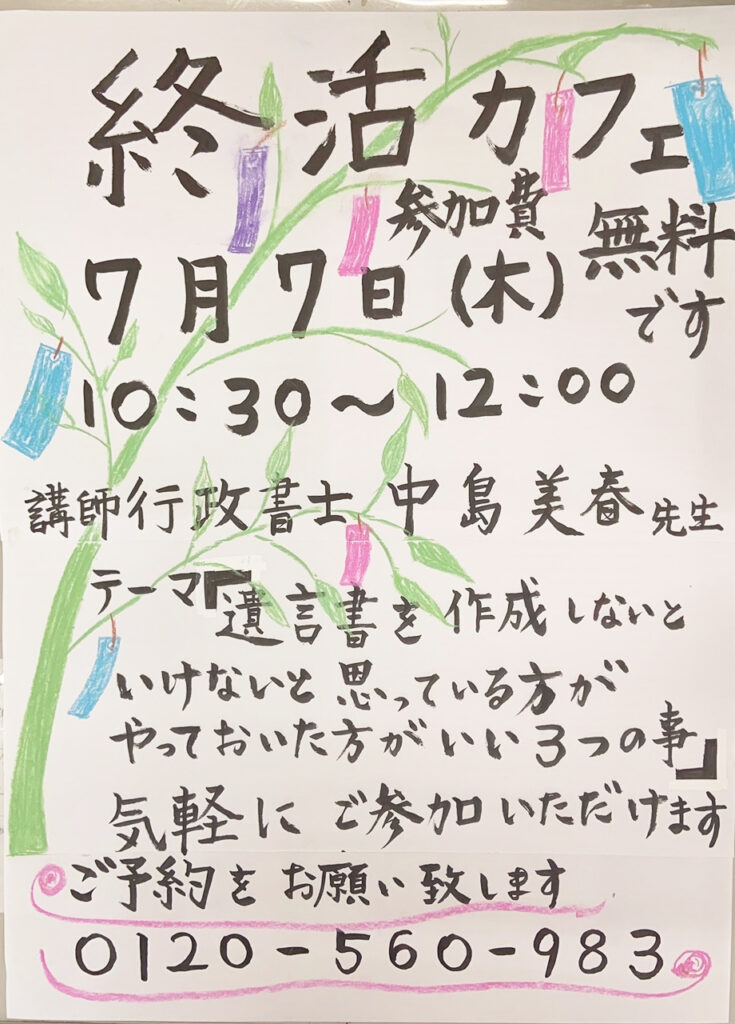 終活カフェ
参加費 無料
です
7月7日(木)
10:30～12:00
講師行政書士 中島美春先生
テーマ『遺言書を作成しないと
いけないと思っている方が
やっておいた方がいい3つの事』
気軽にご参加いただけます
ご予約をお願い致します
0120-560-983